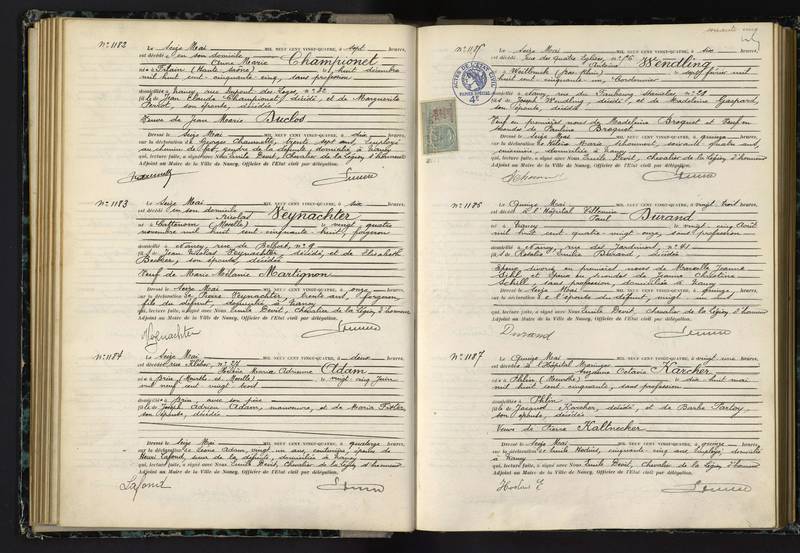 N° 1182
Le Seize Mai MIL NEUF CENT VINGT-QUATRE, à sept heures,
est décédée en son domicile
Anne Marie Championet
née à Filain (Haute Saône) le huit décembre
mil huit cent cinquante, sans profession
domiciliée à Nancy, rue n° 32
fille de Jean Claude Championet, décédé, et de Marguerite
son épouse, décédée
Veuve de Jean Marie Duclos
Dressé le Seize Mai MIL NEUF CENT VINGT-QUATRE, à dix heures,
sur la déclaration de Georges trente sept ans, Employé
au chemin de fer, gendre de la défunte, domicilié à Nancy
qui, lecture faite, a signé avec Nous Emile Devit, Chevalier de la Légion d'honneur
Adjoint au Maire de la Ville de Nancy, Officier de l'Etat civil par délégation.
N° 1183
Le Seize Mai MIL NEUF CENT VINGT-QUATRE, à six heures,
est décédé en son domicile
Nicolas Peynachter
né à Cattenom (Moselle) le vingt quatre
novembre mil huit cent cinquante huit, forgeron
domicilié à Nancy rue de Belfort, n° 9
fils de Jean Nicolas Peynachter, décédé, et de Elisabeth
son épouse, décédée
Veuf de Marie Mélanie Martignon
Dressé le Seize Mai MIL NEUF CENT VINGT-QUATRE, à onze heures,
sur la déclaration de Pierre Peynachter, trente ans, forgeron,
fils du défunt, domicilié à Nancy
qui, lecture faite, a signé avec Nous Emile Devit, Chevalier de la Légion d'honneur
Adjoint au Maire de la Ville de Nancy, Officier de l'Etat civil par délégation.
Peynachter
N° 1184
Le Seize Mai MIL NEUF CENT VINGT-QUATRE, à deux heures,
est décédée rue Kléber, n° 27
Hélène Maria Adrienne Adam
née à Brin (Meurthe et Moselle) le vingt cinq Juin
mil neuf cent vingt trois
domiciliée à Brin, avec son père
fille de Joseph Adrien Adam, manoeuvre, et de Maria
son épouse, décédée
Dressé le Seize Mai MIL NEUF CENT VINGT-QUATRE, à quatorze heures,
sur la déclaration de Léonie Adam, vingt un ans, couturière, épouse de
Henri Lafond, soeur de la défunte, domiciliée à Nancy
qui, lecture faite, a signé avec Nous Emile Devit, Chevalier de la Légion d'honneur
Adjoint au Maire de la Ville de Nancy, Officier de l'Etat civil par délégation.
Lafond
soixante cinq
N° 1185
Le Seize Mai MIL NEUF CENT VINGT-QUATRE, à six heures,
est décédé rue des Quatre Eglises, n° 76
Antoine Wendling
né à Weitbruch (Bas-Rhin) le sept février mil
huit cent cinquante un Cordonnier
domicilié à Nancy, rue du Faubourg Stanislas n° 29
fils de Joseph Wendling, décédé, et de Madeleine Gaspard,
son épouse, décédée
Veuf en premières noces de Madeleine Broquet et Veuf en
secondes de Pauline Broquet
Dressé le Seize Mai MIL NEUF CENT VINGT-QUATRE, à quinze heures,
sur la déclaration de Hélène Marie soixante quatre ans,
domiciliée à Nancy
qui, lecture faite, a signé avec Nous Emile Devit, Chevalier de la Légion d'honneur
Adjoint au Maire de la Ville de Nancy, Officier de l'Etat civil par délégation.
ACTES DE L'ETAT CIVIL
PAPIER SPÉCIAL
4F
N° 1186
Le Quinze Mai MIL NEUF CENT VINGT-QUATRE, à vingt trois heures,
est décédé à l'Hôpital Villemin
Paul Durand
né à Nancy le vingt cinq Août
mil huit cent quatre vingt onze, sans profession
domicilié à Nancy, rue des Jardiniers, n° 41
fils de Rosalie Emilie Durand, décédée
Epoux divorcé en premières noces de Marcelle Jeanne
et Epoux en secondes de Jeanne Christine
Schill, sans profession, domiciliée à Nancy
Dressé le Seize Mai MIL NEUF CENT VINGT-QUATRE, à quinze heures,
sur la déclaration de l'épouse du défunt, vingt un ans
qui, lecture faite, a signé avec Nous Emile Devit, Chevalier de la Légion d'honneur
Adjoint au Maire de la Ville de Nancy, Officier de l'Etat civil par délégation.
Durand
N° 1187
Le Quinze Mai MIL NEUF CENT VINGT-QUATRE, à vingt une heures,
est décédée à l'Hôpital Maringer
Angélique Octavie Karcher
née à Phlin (Meurthe) le dix huit mai
mil huit cent cinquante, sans profession
domiciliée à Phlin
fille de Jacquot Karcher, décédé, et de Barbe
son épouse, décédée
Veuve de Pierre Kaltnecker
Dressé le Seize Mai MIL NEUF CENT VINGT-QUATRE, à quinze heures,
sur la déclaration de Emile cinquante cinq ans Employé domicilié
à Nancy
qui, lecture faite, a signé avec Nous Emile Devit, Chevalier de la Légion d'honneur
Adjoint au Maire de la Ville de Nancy, Officier de l'Etat civil par délégation.